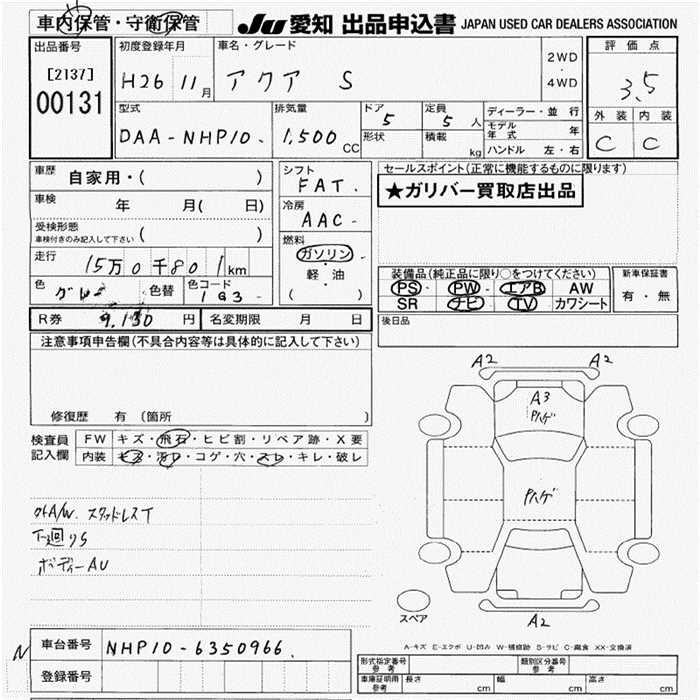 車内保管・守衛保管
JU 愛知 出品申込書 JAPAN USED CAR DEALERS ASSOCIATION
出品番号
[2137]
00131
初度登録年月
H26 11月
車名・グレード
アクア S
2WD
・
4WD
評価点
3.5
外装 内装
C C
型式
DAA-NHP10
排気量
1,500 CC
ドア
5
定員
5 人
形状
積載
kg
ディーラー・並行
モデル年式 年
ハンドル 左・右
車歴
自家用・( )
車検
年 月( 日)
受検形態
車検付きのみ記入して下さい ( )
走行
15万0千801km
色
グレー
色替
色コード
1G3
シフト
FAT.
冷房
AAC-
燃料
ガソリン
・
軽・油
( )
セールスポイント(正常に機能するものに限ります)
★ガリバー買取店出品
装備品(純正品に限り○をつけてください)
PS PW エアB AW
SR ナビ TV カワシート
新車保証書
有・無
後日品
R券 9,130 円
名変期限 月 日
注意事項申告欄(不具合内容等は具体的に記入して下さい)
修復歴 有 (箇所 )
検査員
記入欄
FW キズ・飛石・ヒビ割・リペア跡・X要
内装 キズ・汚レ・コゲ・穴・スレ・キレ・破レ
外A/W. スタッドレスT
下廻りS
ボディーAU
A2 A2
A3
Pハゲ
Pハゲ
A2
スペア
A-キズ E-エクボ U-凹み W-補修跡 S-サビ C-腐食 XX-交換済
N
車台番号 NHP10-6350966
登録番号
形式指定番号
参考
類別区分番号
参考
車庫証明用
参考
長さ cm 幅 cm 高さ cm